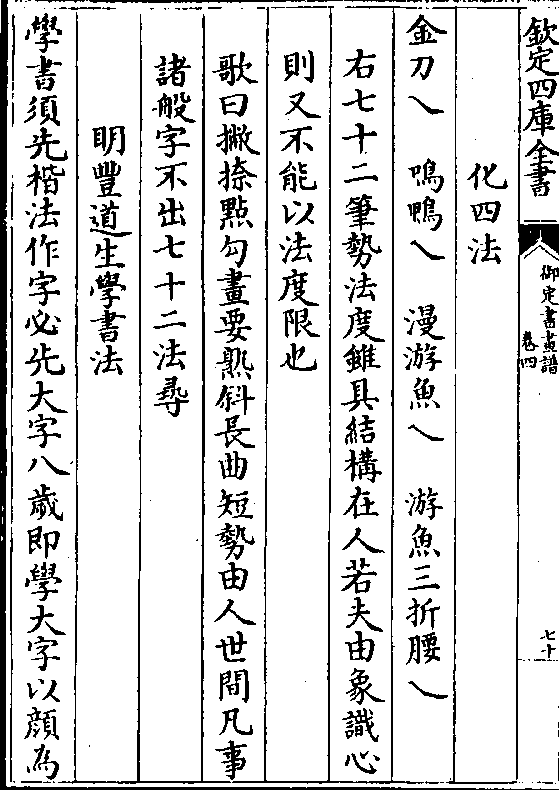 欽定四庫全書
御定書畫譜
卷四
七十
化四法
金刀乀　鳴鴨乀　漫游魚乀　游魚三折腰乀
右七十二筆勢法度雖具結構在人若夫由象識心
則又不能以法度限也
歌曰撇捺點勾畫要熟斜長曲短勢由人世間凡事
諸般字不出七十二法尋
明豐道生學書法
學書須先楷法作字必先大字八歲即學大字以顔為